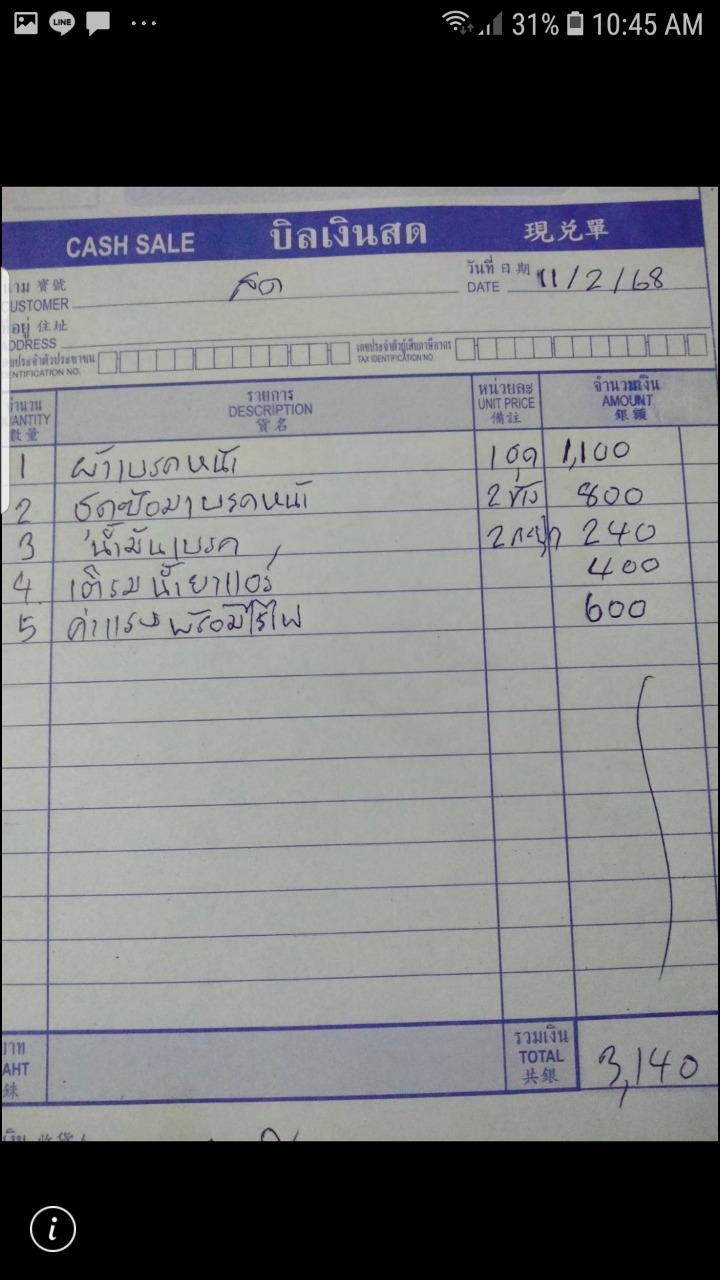 LINE ... 31% 10:45 AM
CASH SALE บิลเงินสด 現兑單
นาม 寶號 สด วันที่ 日期 11/2/68
CUSTOMER DATE
ที่อยู่ 住址
ADDRESS
ประจำตัวประชาชน เลขประจำตัวผู้เสียภาษีอากร
IDENTIFICATION NO. TAX IDENTIFICATION NO.
จำนวน รายการ หน่วยละ จำนวนเงิน
QUANTITY DESCRIPTION UNIT PRICE AMOUNT
數量 貨名 備註 銀額
1 ผ้าเบรคหน้า 1 ชุด 1,100
2 ชุดซ่อมเบรคหน้า 2 ข้าง 800
3 น้ำมันเบรค 2 กระปุก 240
4 เติมน้ำยาแอร์ 400
5 ค่าแรงพร้อม 600
บาท รวมเงิน
BAHT TOTAL 3,140
銖 共銀
i